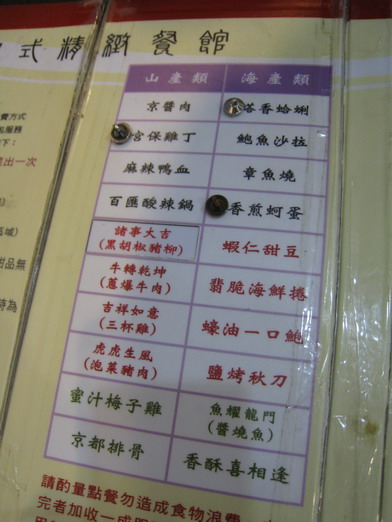 式精緻餐館
山產類 海產類
京醬肉 塔香蛤蜊
宮保雞丁 鮑魚沙拉
麻辣鴨血 章魚燒
百匯酸辣鍋 香煎蚵蛋
諸事大吉
(黑胡椒豬柳) 蝦仁甜豆
牛轉乾坤
(蔥爆牛肉) 翡脆海鮮捲
吉祥如意
(三杯雞) 蠔油一口鮑
虎虎生風
(泡菜豬肉) 鹽烤秋刀
蜜汁梅子雞 魚耀龍門
(醬燒魚)
京都排骨 香酥喜相逢
請酌量點餐勿造成食物浪費
完者加收一成
費方式
服務
下：
出一次
區域)
甜品無
時為